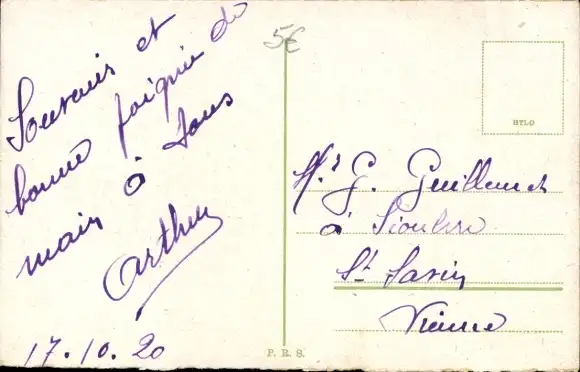 Souvenir et
bonne poignée de
main à tous
Arthur
17.10.20
5€
BTLO
Mr G. Guillemet
à
St Savin
Vienne
P. R. S.